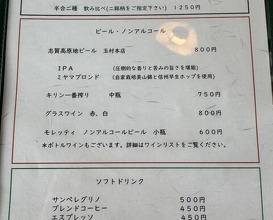 半合二種 飲み比べ(二銘柄をご指定下さい) 1250円
ビール・ノンアルコール
志賀高原地ビール 玉村本店 800円
IPA (圧倒的な香りと苦みの旨さを堪能)
ミヤマブロンド (自家栽培美山錦と信州早生ホップを使用)
キリン一番搾り 中瓶 750円
グラスワイン 赤、白 800円
モレッティ ノンアルコールビール 小瓶 600円
*ボトルワインもございます。詳細はワインリストをご覧ください。
ソフトドリンク
サンペレグリノ 500円
ブレンドコーヒー 450円
エスプレッソ 450円